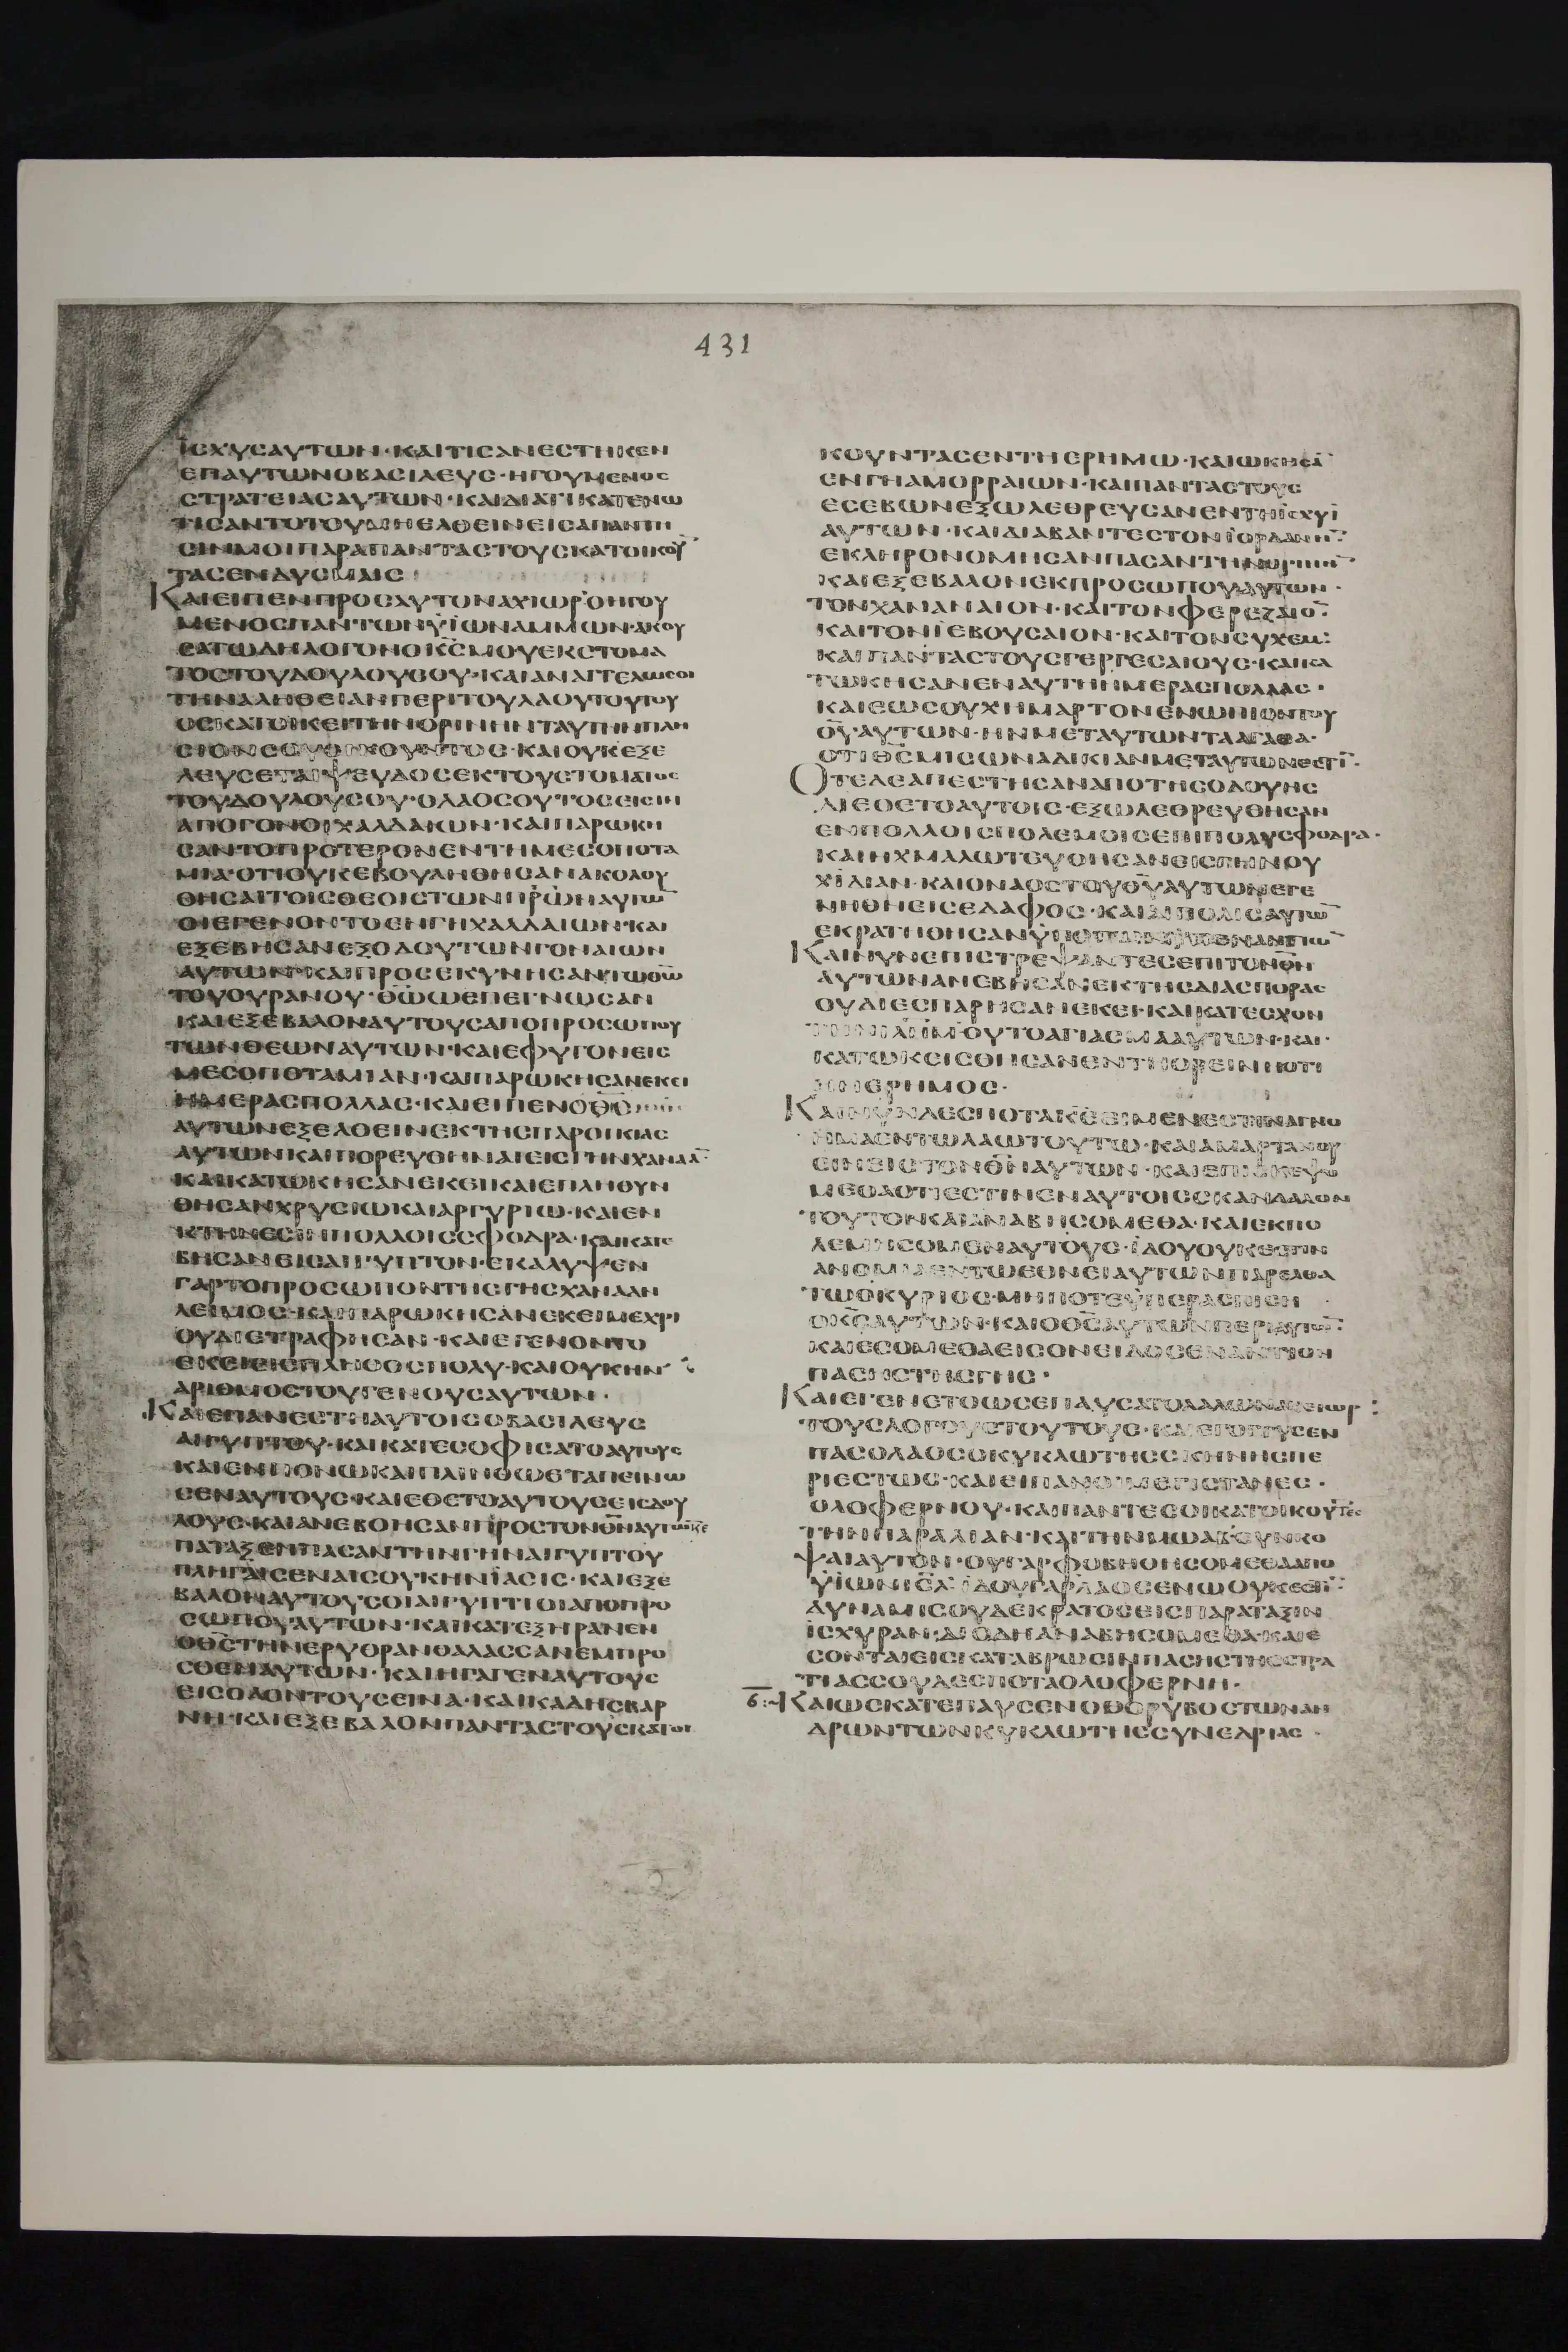 431
ΙΣΧΥΣΑΥΤΩΝ·ΚΑΙΤΙΣΑΝΕΣΤΗΚΕΝ
ΕΠΑΥΤΩΝΟΒΑΣΙΛΕΥΣ·ΗΓΟΥΜΕΝΟΣ
ΣΤΡΑΤΕΙΑΣΑΥΤΩΝ·ΚΑΙΔΙΑΤΙΚΑΤΕΝΩ
ΤΙΣΑΝΤΟΤΟΥΜΗΕΛΘΕΙΝΕΙΣΑΠΑΝΤΗ
ΣΙΝΜΟΙΠΑΡΑΠΑΝΤΑΣΤΟΥΣΚΑΤΟΙΚΟΥ̅
ΤΑΣΕΝΔΥΣΜΑΙΣ
ΚΑΙΕΙΠΕΝΠΡΟΣΑΥΤΟΝΑΧΙΩΡ·ΟΗΓΟΥ
ΜΕΝΟΣΠΑΝΤΩΝΥΪΩΝΑΜΜΩΝ·ΑΚΟΥ
ΣΑΤΩΔΗΛΟΓΟΝΟΚ̅Σ̅ΜΟΥΕΚΣΤΟΜΑ
ΤΟΣΤΟΥΔΟΥΛΟΥΣΟΥ·ΚΑΙΑΝΑΓΓΕΛΩΣΟΙ
ΤΗΝΑΛΗΘΕΙΑΝΠΕΡΙΤΟΥΛΑΟΥΤΟΥΤΟΥ
ΟΣΚΑΤΟΙΚΕΙΤΗΝΟΡΙΝΗΝΤΑΥΤΗΝΠΛΗ
ΣΙΟΝΣΟΥΟΙΚΟΥΝΤΟΣ·ΚΑΙΟΥΚΕΞΕ
ΛΕΥΣΕΤΑΙΨΕΥΔΟΣΕΚΤΟΥΣΤΟΜΑΤΟΣ
ΤΟΥΔΟΥΛΟΥΣΟΥ·ΟΛΑΟΣΟΥΤΟΣΕΙΣΙΝ
ΑΠΟΓΟΝΟΙΧΑΛΔΑΙΩΝ·ΚΑΙΠΑΡΩΚΗ
ΣΑΝΤΟΠΡΟΤΕΡΟΝΕΝΤΗΜΕΣΟΠΟΤΑ
ΜΙΑ·ΟΤΙΟΥΚΕΒΟΥΛΗΘΗΣΑΝΑΚΟΛΟΥ
ΘΗΣΑΙΤΟΙΣΘΕΟΙΣΤΩΝΠΡ̅Ω̅ΝΑΥΤΩ̅
ΟΙΕΓΕΝΟΝΤΟΕΝΓΗΧΑΛΔΑΙΩΝ·ΚΑΙ
ΕΞΕΒΗΣΑΝΕΞΟΔΟΥΤΩΝΓΟΝΑΙΩΝ
ΑΥΤΩΝ·ΚΑΙΠΡΟΣΕΚΥΝΗΣΑΝΤΩΘΩ̅
ΤΟΥΟΥΡΑΝΟΥ·Θ̅Ω̅ΩΕΠΕΓΝΩΣΑΝ
ΚΑΙΕΞΕΒΑΛΟΝΑΥΤΟΥΣΑΠΟΠΡΟΣΩΠΟΥ
ΤΩΝΘΕΩΝΑΥΤΩΝ·ΚΑΙΕΦΥΓΟΝΕΙΣ
ΜΕΣΟΠΟΤΑΜΙΑΝ·ΚΑΙΠΑΡΩΚΗΣΑΝΕΚΕΙ
ΗΜΕΡΑΣΠΟΛΛΑΣ·ΚΑΙΕΙΠΕΝΟΘ̅Σ̅
ΑΥΤΩΝΕΞΕΛΘΕΙΝΕΚΤΗΣΠΑΡΟΙΚΙΑΣ
ΑΥΤΩΝΚΑΙΠΟΡΕΥΘΗΝΑΙΕΙΣΓΗΝΧΑΝΑΑ̅·
ΚΑΙΚΑΤΩΚΗΣΑΝΕΚΕΙΚΑΙΕΠΛΗΘΥΝ
ΘΗΣΑΝΧΡΥΣΙΩΚΑΙΑΡΓΥΡΙΩ·ΚΑΙΕΝ
ΚΤΗΝΕΣΙΝΠΟΛΛΟΙΣΣΦΟΔΡΑ·ΚΑΙΚΑΤΕ
ΒΗΣΑΝΕΙΣΑΙΓΥΠΤΟΝ·ΕΚΑΛΥΨΕΝ
ΓΑΡΤΟΠΡΟΣΩΠΟΝΤΗΣΓΗΣΧΑΝΑΑΝ
ΛΕΙΜΟΣ·ΚΑΙΠΑΡΩΚΗΣΑΝΕΚΕΙΜΕΧΡΙ
ΟΥΔΙΕΤΡΑΦΗΣΑΝ·ΚΑΙΕΓΕΝΟΝΤΟ
ΕΚΕΙΕΙΣΠΛΗΘΟΣΠΟΛΥ·ΚΑΙΟΥΚΗΝ
ΑΡΙΘΜΟΣΤΟΥΓΕΝΟΥΣΑΥΤΩΝ·
ΚΑΙΕΠΑΝΕΣΤΗΑΥΤΟΙΣΟΒΑΣΙΛΕΥΣ
ΑΙΓΥΠΤΟΥ·ΚΑΙΚΑΤΕΣΟΦΙΣΑΤΟΑΥΤΟΥΣ
ΚΑΙΕΝΠΟΝΩΚΑΙΠΛΙΝΘΩΕΤΑΠΕΙΝΩ
ΣΕΝΑΥΤΟΥΣ·ΚΑΙΕΘΕΤΟΑΥΤΟΥΣΕΙΣΔΟΥ
ΛΟΥΣ·ΚΑΙΑΝΕΒΟΗΣΑΝΠΡΟΣΤΟΝΘ̅Ν̅ΑΥΤΩ̅ΚΕ
ΠΑΤΑΞΕΝΠΑΣΑΝΤΗΝΓΗΝΑΙΓΥΠΤΟΥ
ΠΛΗΓΑΙΣΕΝΑΙΣΟΥΚΗΝΪΑΣΙΣ·ΚΑΙΕΞΕ
ΒΑΛΟΝΑΥΤΟΥΣΟΙΑΙΓΥΠΤΙΟΙΑΠΟΠΡΟ
ΣΩΠΟΥΑΥΤΩΝ·ΚΑΙΚΑΤΕΞΗΡΑΝΕΝ
ΟΘ̅Σ̅ΤΗΝΕΡΥΘΡΑΝΘΑΛΑΣΣΑΝΕΜΠΡΟ
ΣΘΕΝΑΥΤΩΝ·ΚΑΙΗΓΑΓΕΝΑΥΤΟΥΣ
ΕΙΣΟΔΟΝΤΟΥΣΕΙΝΑ·ΚΑΙΚΑΔΗΣΒΑΡ
ΝΗ·ΚΑΙΕΞΕΒΑΛΟΝΠΑΝΤΑΣΤΟΥΣΚΑΤΟΙ
ΚΟΥΝΤΑΣΕΝΤΗΕΡΗΜΩ·ΚΑΙΩΚΗΣΑ̅
ΕΝΓΗΑΜΟΡΡΑΙΩΝ·ΚΑΙΠΑΝΤΑΣΤΟΥΣ
ΕΣΕΒΩΝΕΞΩΛΕΘΡΕΥΣΑΝΕΝΤΗΪΣΧΥΪ
ΑΥΤΩΝ·ΚΑΙΔΙΑΒΑΝΤΕΣΤΟΝΙΟΡΔΑΝΗ̅·
ΕΚΛΗΡΟΝΟΜΗΣΑΝΠΑΣΑΝΤΗΝΟΡΙΝΗ̅
ΚΑΙΕΞΕΒΑΛΟΝΕΚΠΡΟΣΩΠΟΥΑΥΤΩΝ·
ΤΟΝΧΑΝΑΝΑΙΟΝ·ΚΑΙΤΟΝΦΕΡΕΖΑΙΟ̅·
ΚΑΙΤΟΝΪΕΒΟΥΣΑΙΟΝ·ΚΑΙΤΟΝΣΥΧΕΜ:
ΚΑΙΠΑΝΤΑΣΤΟΥΣΓΕΡΓΕΣΑΙΟΥΣ·ΚΑΙΚΑ
ΤΩΚΗΣΑΝΕΝΑΥΤΗΗΜΕΡΑΣΠΟΛΛΑΣ·
ΚΑΙΕΩΣΟΥΧΗΜΑΡΤΟΝΕΝΩΠΙΟΝΤΟΥ
Θ̅Υ̅ΑΥΤΩΝ·ΗΝΜΕΤΑΥΤΩΝΤΑΑΓΑΘΑ·
ΟΤΙΘ̅Σ̅ΜΙΣΩΝΑΔΙΚΙΑΝΜΕΤΑΥΤΩΝΕΣΤΙ̅·
ΟΤΕΔΕΑΠΕΣΤΗΣΑΝΑΠΟΤΗΣΟΔΟΥΗΣ
ΔΙΕΘΕΤΟΑΥΤΟΙΣ·ΕΞΩΛΕΘΡΕΥΘΗΣΑΝ
ΕΝΠΟΛΛΟΙΣΠΟΛΕΜΟΙΣΕΠΙΠΟΛΥΣΦΟΔΡΑ·
ΚΑΙΗΧΜΑΛΩΤΕΥΘΗΣΑΝΕΙΣΓΗΝΟΥ
ΧΙΔΙΑΝ·ΚΑΙΟΝΑΟΣΤΟΥΘ̅Υ̅ΑΥΤΩΝΕΓΕ
ΝΗΘΗΕΙΣΕΔΑΦΟΣ·ΚΑΙΑΙΠΟΛΙΣΑΥΤΩ̅
ΕΚΡΑΤΗΘΗΣΑΝΫΠΟΤΩΝΫΠΕΝΑΝΤΙΩ̅
ΚΑΙΝΥΝΕΠΙΣΤΡΕΨΑΝΤΕΣΕΠΙΤΟΝΘ̅Ν̅
ΑΥΤΩΝΑΝΕΒΗΣΑΝΕΚΤΗΣΔΙΑΣΠΟΡΑΣ
ΟΥΔΙΕΣΠΑΡΗΣΑΝΕΚΕΙ·ΚΑΙΚΑΤΕΣΧΟΝ
ΤΗΝΙΛΗΜ·ΟΥΤΟΑΓΙΑΣΜΑΑΥΤΩΝ·ΚΑΙ·
ΚΑΤΩΚΕΙΣΘΗΣΑΝΕΝΤΗΟΡΕΙΝΗΟΤΙ
ΗΝΕΡΗΜΟΣ·
ΚΑΙΝΥΝΔΕΣΠΟΤΑΚ̅Ε̅ΕΙΜΕΝΕΣΤΙΝΑΓΝΟ
ΗΜΑΕΝΤΩΛΑΩΤΟΥΤΩ·ΚΑΙΑΜΑΡΤΑΝΟΥ
ΣΙΝΕΙΣΤΟΝΘ̅Ν̅ΑΥΤΩΝ·ΚΑΙΕΠΙΣΚΕΨΟ
ΜΕΘΑΟΤΙΕΣΤΙΝΕΝΑΥΤΟΙΣΣΚΑΝΔΑΛΟΝ
ΤΟΥΤΟΝΚΑΙΑΝΑΒΗΣΟΜΕΘΑ·ΚΑΙΕΚΠΟ
ΛΕΜΗΣΟΜΕΝΑΥΤΟΥΣ·ΪΔΟΥΟΥΚΕΣΤΙΝ
ΑΝΟΜΙΑΕΝΤΩΕΘΝΕΙΑΥΤΩΝΠΑΡΕΛΘΑ
ΤΩΟΚΥΡΙΟΣ·ΜΗΠΟΤΕΫΠΕΡΑΣΠΙΣΗ
ΟΚ̅Σ̅ΑΥΤΩΝ·ΚΑΙΟΘ̅Σ̅ΑΥΤΩΝΠΕΡΙΑΥΤΩ̅·
ΚΑΙΕΣΟΜΕΘΑΕΙΣΟΝΕΙΔΟΣΕΝΑΝΤΙΟΝ
ΠΑΣΗΣΤΗΣΓΗΣ·
ΚΑΙΕΓΕΝΕΤΟΩΣΕΠΑΥΣΑΤΟΛΑΛΩΝΑΧΕΙΩΡ:
ΤΟΥΣΛΟΓΟΥΣΤΟΥΤΟΥΣ·ΚΑΙΕΓΟΓΓΥΣΕΝ
ΠΑΣΟΛΑΟΣΟΚΥΚΛΩΤΗΣΣΚΗΝΗΣΠΕ
ΡΙΕΣΤΩΣ·ΚΑΙΕΙΠΑΝΟΙΜΕΓΙΣΤΑΝΕΣ·
ΟΛΟΦΕΡΝΟΥ·ΚΑΙΠΑΝΤΕΣΟΙΚΑΤΟΙΚΟΥ̅ΤΕΣ
ΤΗΝΠΑΡΑΛΙΑΝ·ΚΑΙΤΗΝΜΩΑΒ·ΣΥΝΚΟ
ΨΑΙΑΥΤΟΝ·ΟΥΓΑΡΦΟΒΗΘΗΣΟΜΕΘΑΑΠΟ
ΫΪΩΝΙΣ̅Λ̅·ΪΔΟΥΓΑΡΛΑΟΣΕΝΩΟΥΚΕΣΤΙ̅·
ΔΥΝΑΜΙΣΟΥΔΕΚΡΑΤΟΣΕΙΣΠΑΡΑΤΑΞΙΝ
ΙΣΧΥΡΑΝ·ΔΙΟΔΗΑΝΑΒΗΣΟΜΕΘΑ·ΚΑΙΕ
ΣΟΝΤΑΙΕΙΣΚΑΤΑΒΡΩΣΙΝΠΑΣΗΣΤΗΣΣΤΡΑ
ΤΙΑΣΣΟΥΔΕΣΠΟΤΑΟΛΟΦΕΡΝΗ·
ϛ̅:~ΚΑΙΩΣΚΑΤΕΠΑΥΣΕΝΟΘΟΡΥΒΟΣΤΩΝΑΝ
ΔΡΩΝΤΩΝΚΥΚΛΩΤΗΣΣΥΝΕΔΡΙΑΣ·